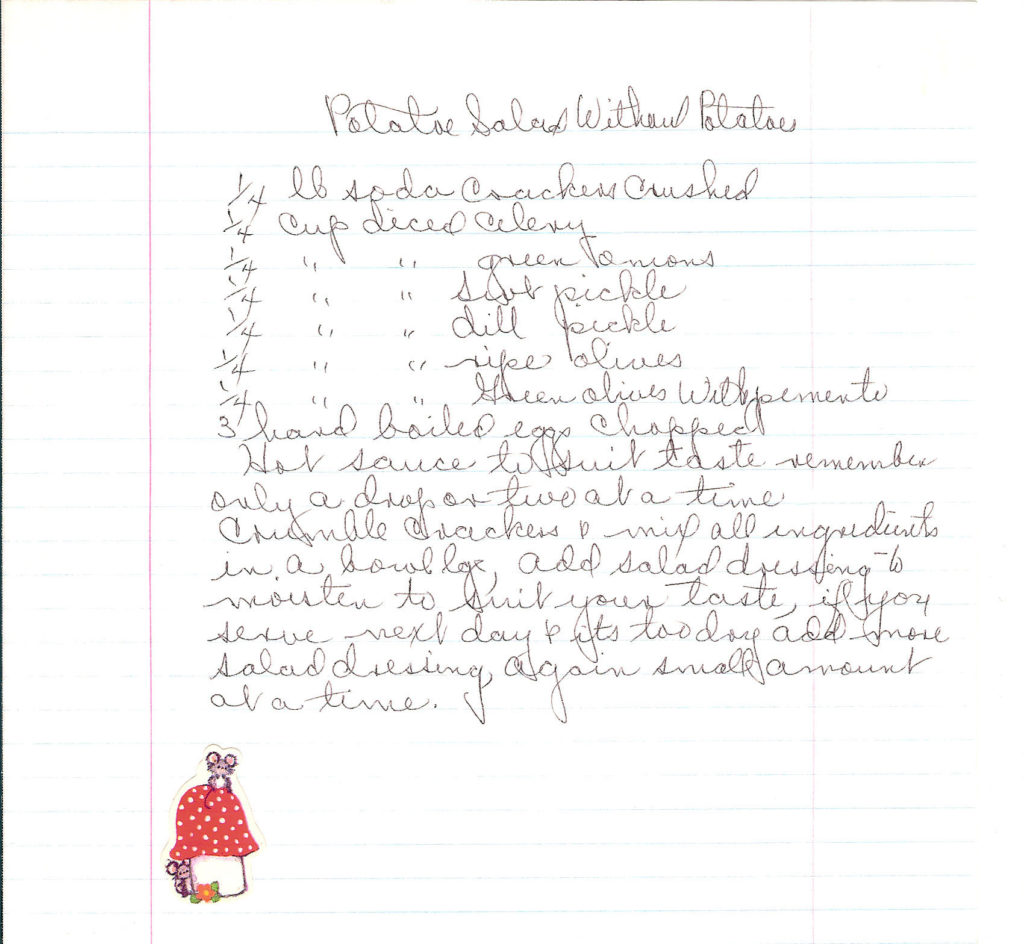 Potatoe Salad Without Potatoes
1/4 lb soda Crackers Crushed
1/4 Cup diced Celery
1/4 " " green onions
1/4 " " sweet pickle
1/4 " " dill pickle
1/4 " " ripe olives
1/4 " " Green olives With pemento
3 hard boiled eggs Chopped
Hot sauce to suit taste remember
only a drop or two at a time
Crumble Crackers & mix all ingredients
in a bowl lge, add salad dressing to
moisten to suit your taste, if you
serve next day & its too dry add more
salad dressing, again small amount
at a time.